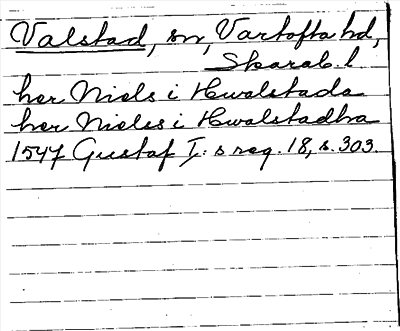 Valstad, sn, Vartofta hd,
Skarab. l
her Niels i Hwalstada
her Nieles i Hwalstadha
1547 Gustaf I: s reg. 18, s. 303.